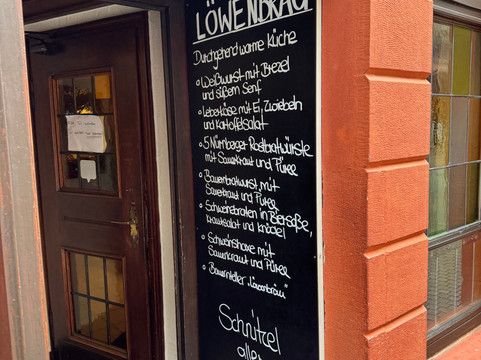 LÖWENBRÄU
Durchgehend warme Küche
o Weißwurst mit Brezel
und süßem Senf
o Leberkäse mit Ei, Zwiebeln
und Kartoffelsalat
o 5 Nürnberger Rostbratwürste
mit Sauerkraut und Püree
o Bauernbratwurst mit
Sauerkraut und Püree
o Schweinebraten in Biersoße,
Krautsalat und Knödel
o Schweinshaxe mit
Sauerkraut und Püree
o Bauernteller „Löwenbräu"
Schnitzel
aller